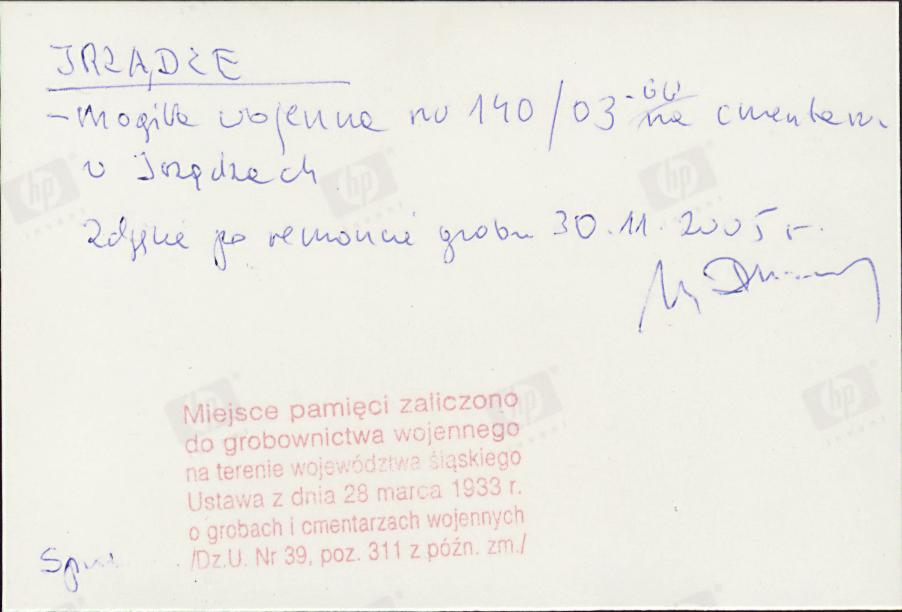 IRZĄDZE
- Mogiła wojenna nr 140/03 - na cmentarzu
w Irządzach
Zdjęcie po remoncie grobu 30.11.2005 r.
Miejsce pamięci zaliczono
do grobownictwa wojennego
na terenie województwa śląskiego
Ustawa z dnia 28 marca 1933 r.
o grobach i cmentarzach wojennych
/Dz.U. Nr 39, poz. 311 z późn. zm./
hp
invent